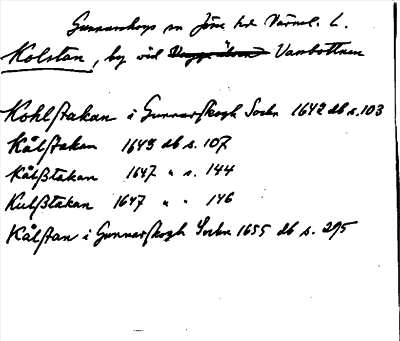 Gunnarskogs sn Jösse hd Värml. L.
Kolstan, by vid Vambottnen
Kohlstakan i Gunnarskogh Sochn 1642 db s. 103
Kålstakan 1643 db s. 107
Kålsstakan 1647 " s. 144
Kulsstakan 1647 " " 146
Kålstan i Gunnarskogh Sochn 1655 db s. 295